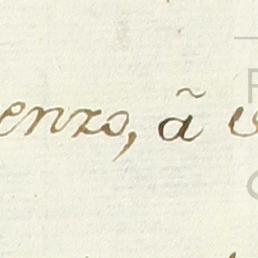 enzo, ã